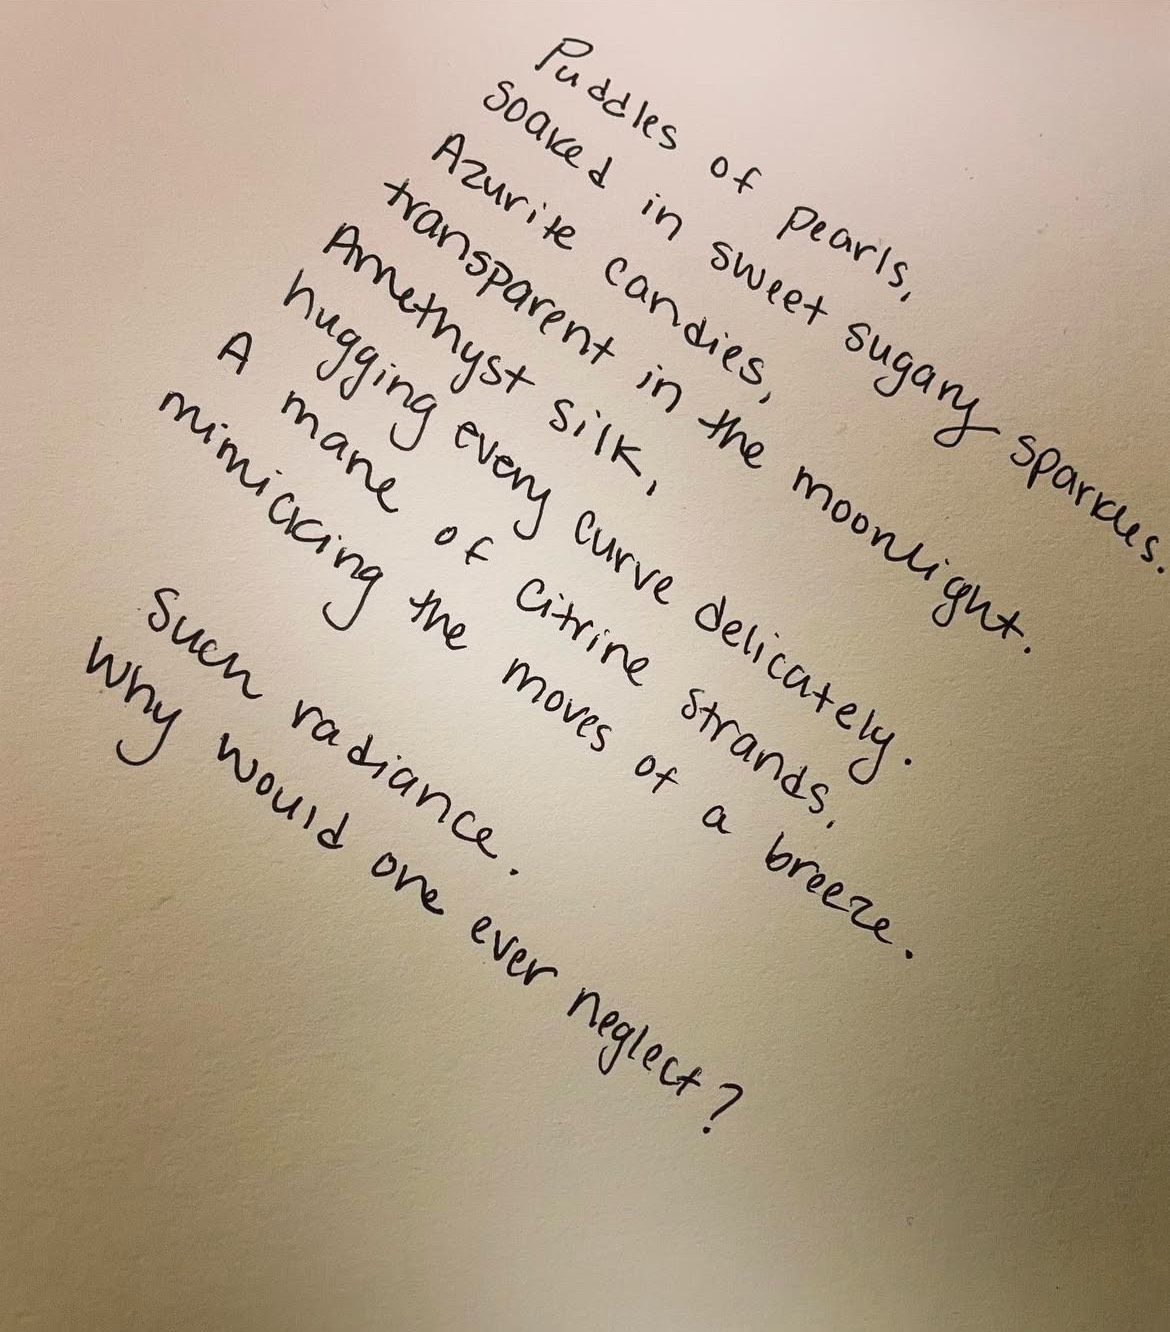 Puddles of pearls,
soaked in sweet sugary sparkles.
Azurite candies,
transparent in the moonlight.
Amethyst silk,
hugging every curve delicately.
A mane of citrine strands,
mimicking the moves of a breeze.
Such radiance.
Why would one ever neglect?